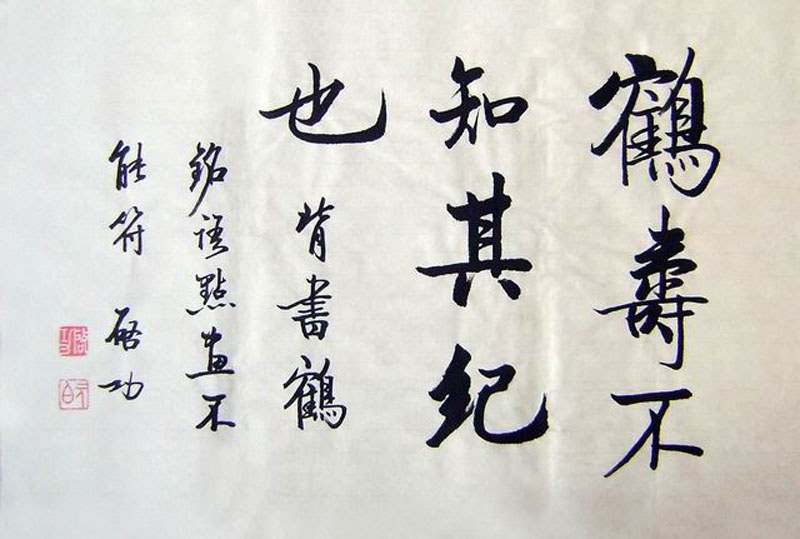 鶴壽不
知其紀
也 背書鶴
銘語點畫不
能符 啓功